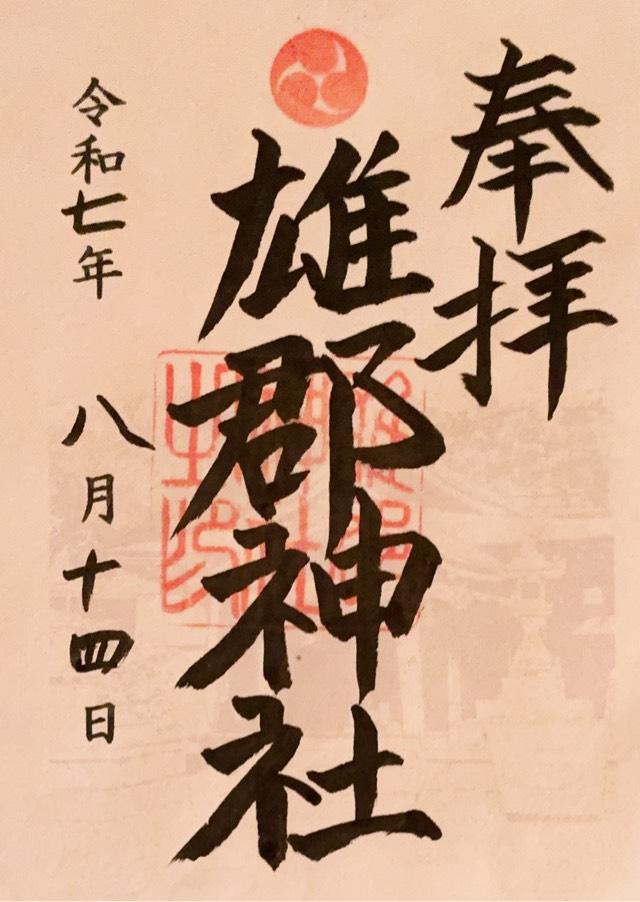 奉拝
雄郡神社
令和七年
八月十四日